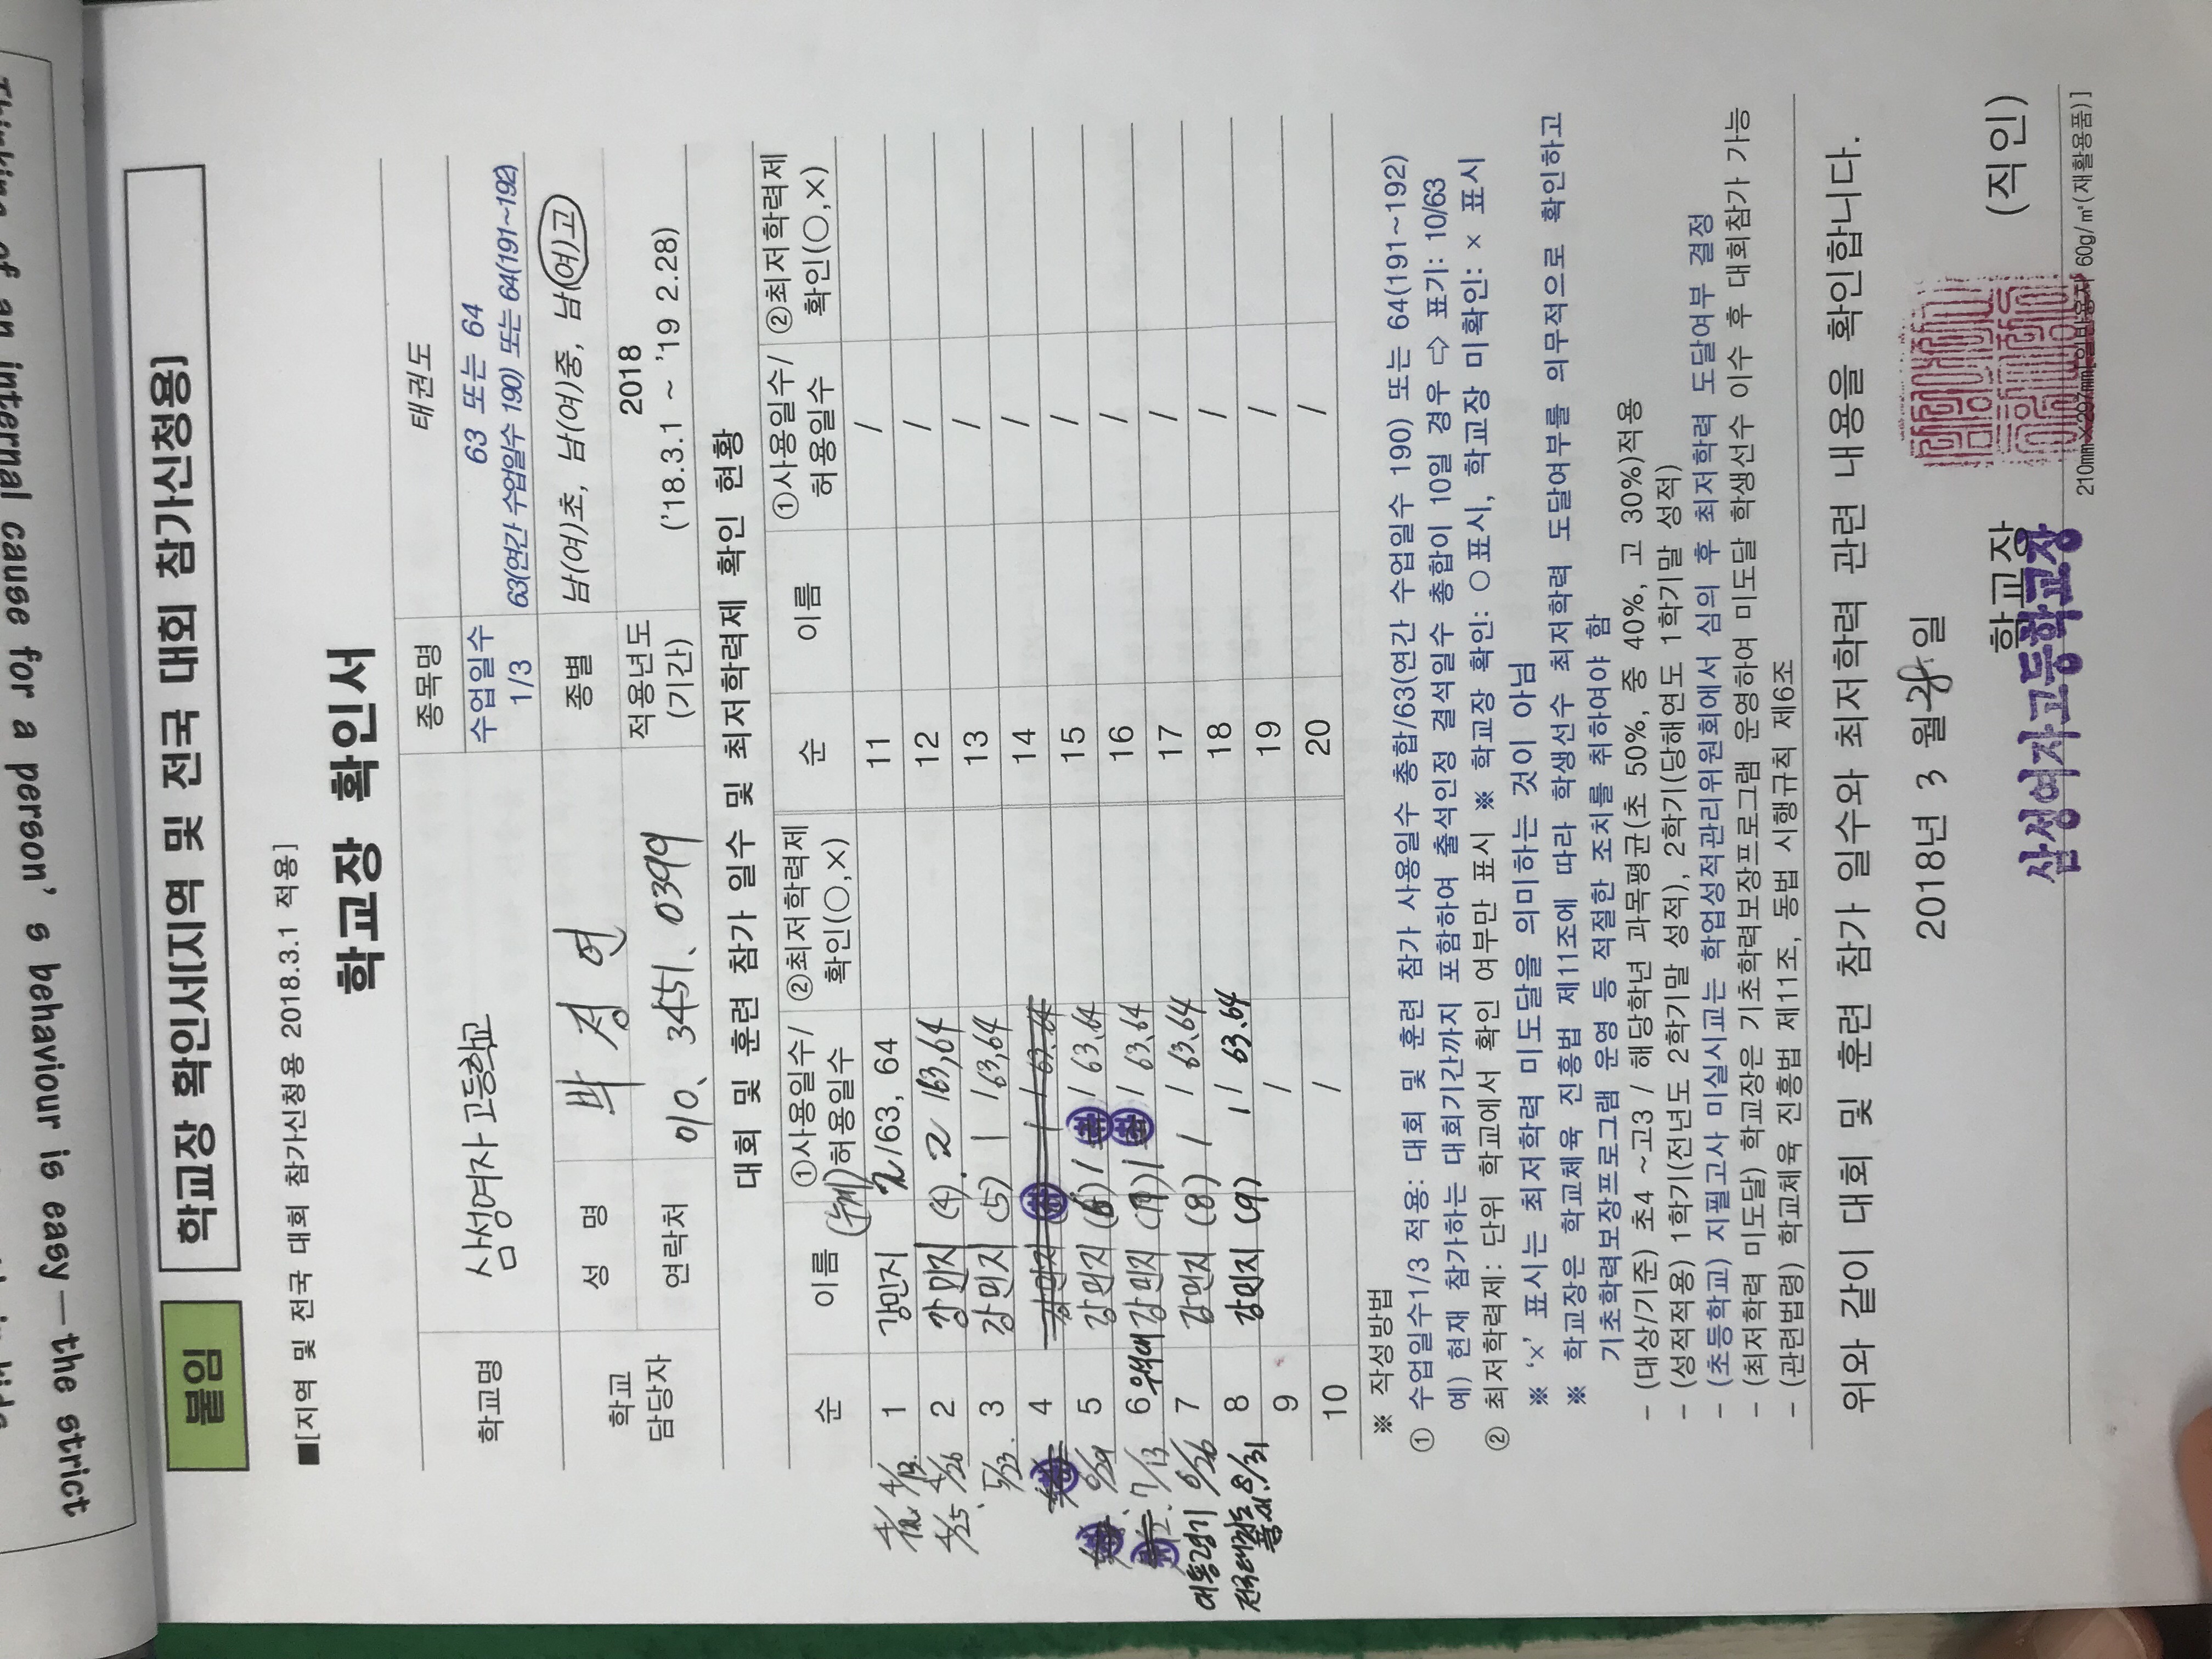 Thinking of an internal cause for a person's behaviour is easy — the strict
붙임
학교장 확인서[지역 및 전국 대회 참가신청용]
■[지역 및 전국 대회 참가신청용 2018.3.1 적용]
학교장 확인서
학교명 삼성여자고등학교 종목명 태권도
수업일수 1/3 63 또는 64
63(연간 수업일수 190) 또는 64(191~192)
학교 담당자 성 명 박 정 연 종별 남(여)초, 남(여)중, 남(여)고
연락처 010. 3451. 0399 적용년도 (기간) 2018
('18.3.1 ~ '19 2.28)
대회 및 훈련 참가 일수 및 최저학력제 확인 현황
순 이름 (누계) ①사용일수/허용일수 ②최저학력제 확인(○,×) 순 이름 ①사용일수/허용일수 ②최저학력제 확인(○,×)
4/12 4/13. 1 강민지 2/63, 64 11 /
4/25. 4/26 2 강민지 (4). 2 /63,64 12 /
5/23. 3 강민지 (5) 1 /63,64 13 /
4 강민지 1 / 63.64 14 /
6/29 5 강민지 (6) / 63.64 15 /
7/13 6 강민지 (7) 1 / 63.64 16 /
대통령기 6/26 7 강민지 (8) 1 / 63.64 17 /
8/31 8 강민지 (9) 1 / 63.64 18 /
9 / 19 /
10 / 20 /
※ 작성방법
① 수업일수1/3 적용: 대회 및 훈련 참가 사용일수 총합/63(연간 수업일수 190) 또는 64(191~192)
예) 현재 참가하는 대회기간까지 포함하여 출석인정 결석일수 총합이 10일 경우 ⇨ 표기: 10/63
② 최저학력제: 단위 학교에서 확인 여부만 표시 ※ 학교장 확인: ○표시, 학교장 미확인: × 표시
※ '×' 표시는 최저학력 미도달을 의미하는 것이 아님
※ 학교장은 학교체육 진흥법 제11조에 따라 학생선수 최저학력 도달여부를 의무적으로 확인하고
기초학력보장프로그램 운영 등 적절한 조치를 취하여야 함
- (대상/기준) 초4 ~고3 / 해당학년 과목평균(초 50%, 중 40%, 고 30%)적용
- (성적적용) 1학기(전년도 2학기말 성적), 2학기(당해연도 1학기말 성적)
- (초등학교) 지필고사 미실시교는 학업성적관리위원회에서 심의 후 최저학력 도달여부 결정
- (최저학력 미도달) 학교장은 기초학력보장프로그램 운영하여 미도달 학생선수 이수 후 대회참가 가능
- (관련법령) 학교체육 진흥법 제11조, 동법 시행규칙 제6조
위와 같이 대회 및 훈련 참가 일수와 최저학력 관련 내용을 확인합니다.
2018년 3 월 일
학교장 (직인)
삼성여자고등학교장
210mm×297mm[일반용지 60g/㎡(재활용품)]